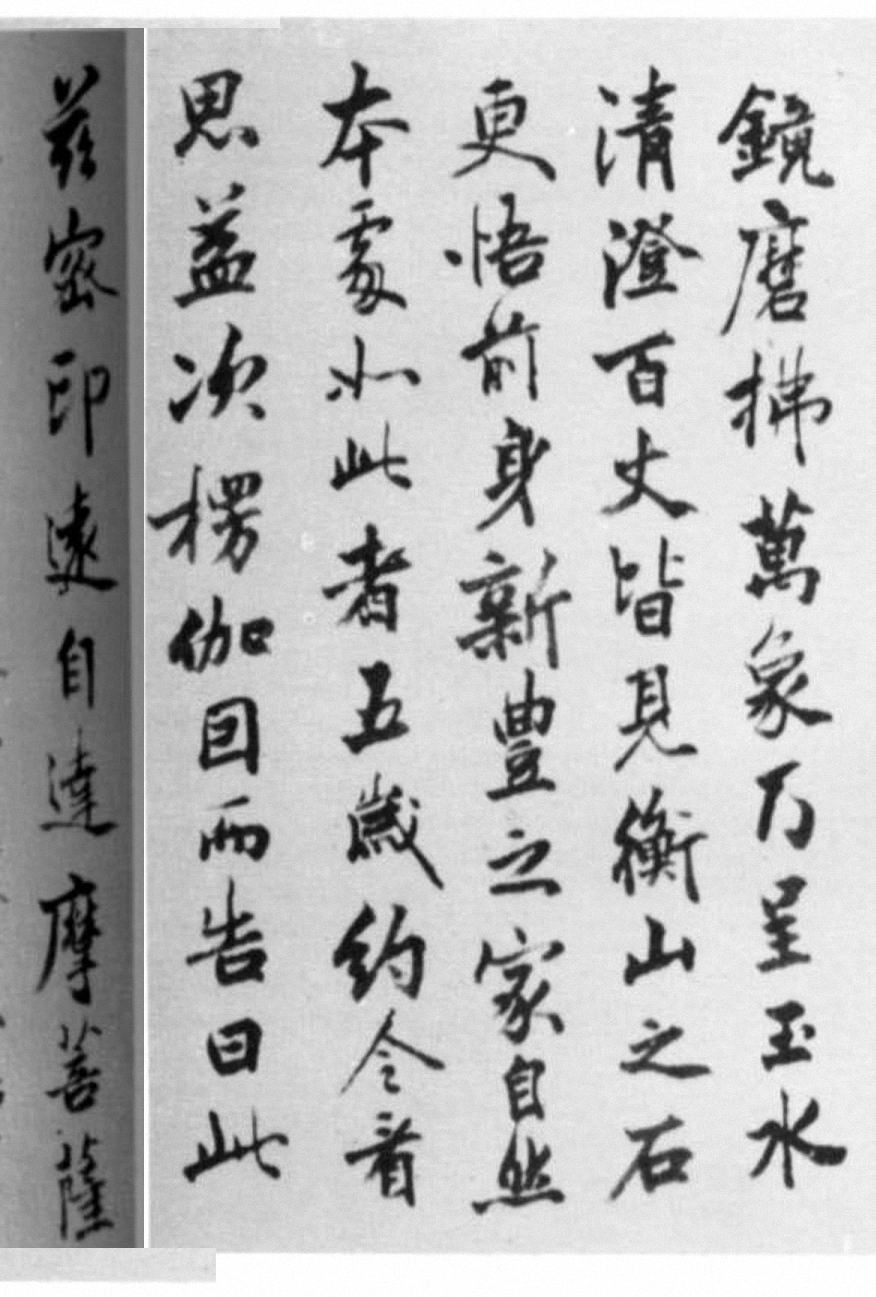 鏡磨拂萬象乃呈玉水
清澄百丈皆見衡山之石
更悟前身新豊之家自然
本處如此者五歲約令看
思益次楞伽因而告曰此
兹密印遠自達摩菩薩